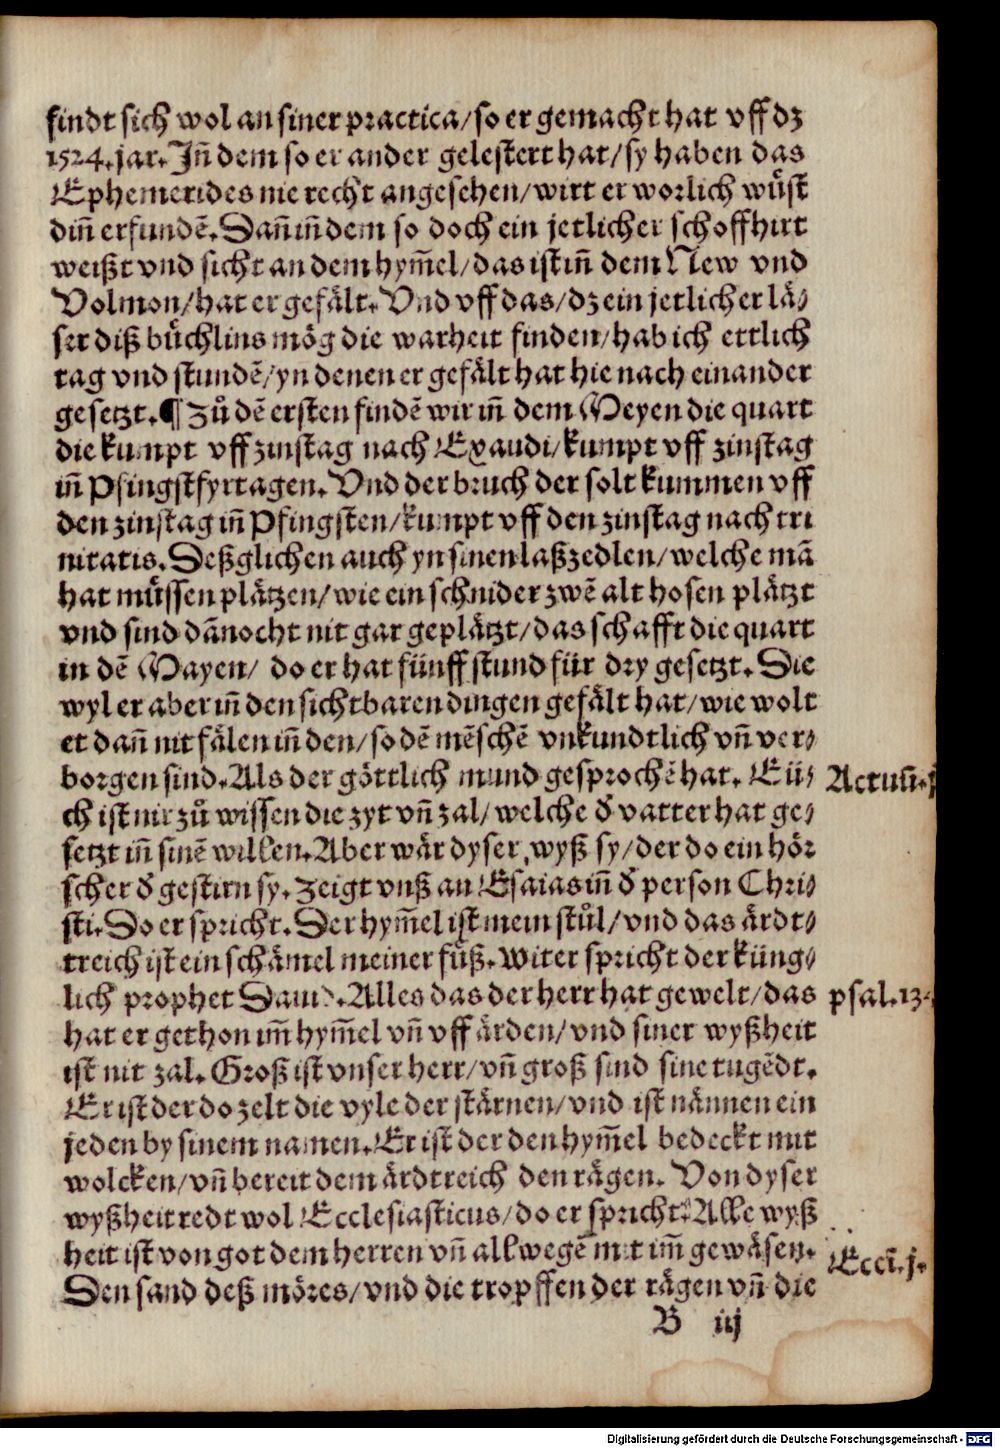 findt sich wol an siner practica/so er gemacht hat vff dz
1524. jar. Jn̄ dem so er ander gelestert hat/sy haben das
Ephemerides nie recht angesehen/wirt er worlich wuͤst
din̄ erfundē. Dan̄ in̄ dem so doch ein jetlicher schoffhirt
weißt vnd sicht an dem hym̄el/das ist in̄ dem New vnd
Volmon/hat er gefaͤlt. Vnd vff das/dz ein jetlicher laͤ⸗
ser diß buͤchlins moͤg die warheit finden/hab ich ettlich
tag vnd stundē/yn denen er gefaͤlt hat hie nach einander
gesetzt. ¶ Zuͦ dē ersten findē wir in̄ dem Meyen die quart
die kumpt vff zinstag nach Exaudi/kumpt vff zinstag
in̄ Pfingstfyrtagen. Vnd der bruch der solt kummen vff
den zinstag in̄ Pfingsten/kumpt vff den zinstag nach tri
nitatis. Deßglichen auch yn sinen laßzedlen/welche mā
hat muͤssen plaͤtzen/wie ein schnider zwē alt hosen plaͤtzt
vnd sind dānocht nit gar geplaͤtzt/das schafft die quart
in dē Mayen/ do er hat fünff stund für dry gesetzt. Die
wyl er aber in̄ den sichtbaren dingen gefaͤlt hat/wie wolt
er dan̄ nit faͤlen in̄ den/so dē mēschē vnkundtlich vn̄ ver⸗
borgen sind. Als der goͤttlich mund gesprochē hat. Eü⸗
ch ist nit zuͦ wissen die zyt vn̄ zal/welche d̄ vatter hat ge⸗
setzt in̄ sinē willen. Aber waͤr dyser wyß sy/der do ein hoͤr
scher d̄ gestirn sy. Zeigt vnß an Esaias in̄ d̄ person Chri⸗
sti. Do er spricht. Der hym̄el ist mein stuͦl/vnd das aͤrdt⸗
treich ist ein schaͤmel meiner fuͤß. Witer spricht der küng⸗
lich prophet Dauid. Alles das der herr hat gewelt/das
hat er gethon im̄ hym̄el vn̄ vff aͤrden/vnd siner wyßheit
ist nit zal. Groß ist vnser herr/vn̄ groß sind sine tugēdt.
Er ist der do zelt die vyle der staͤrnen/vnd ist naͤnnen ein
jeden by sinem namen. Er ist der den hym̄el bedeckt mit
wolcken/vn̄ bereit dem aͤrdtreich den raͤgen. Von dyser
wyßheit redt wol Ecclesiasticus/do er spricht. Alle wyß
heit ist von got dem herren vn̄ allwegē mit im̄ gewaͤsen.
Den sand deß moͤres/vnd die tropffen der raͤgen vn̄ die
B iij
Actuū. j
psal. 13
Eccī. j.
Digitalisierung gefördert durch die Deutsche Forschungsgemeinschaft - DFG